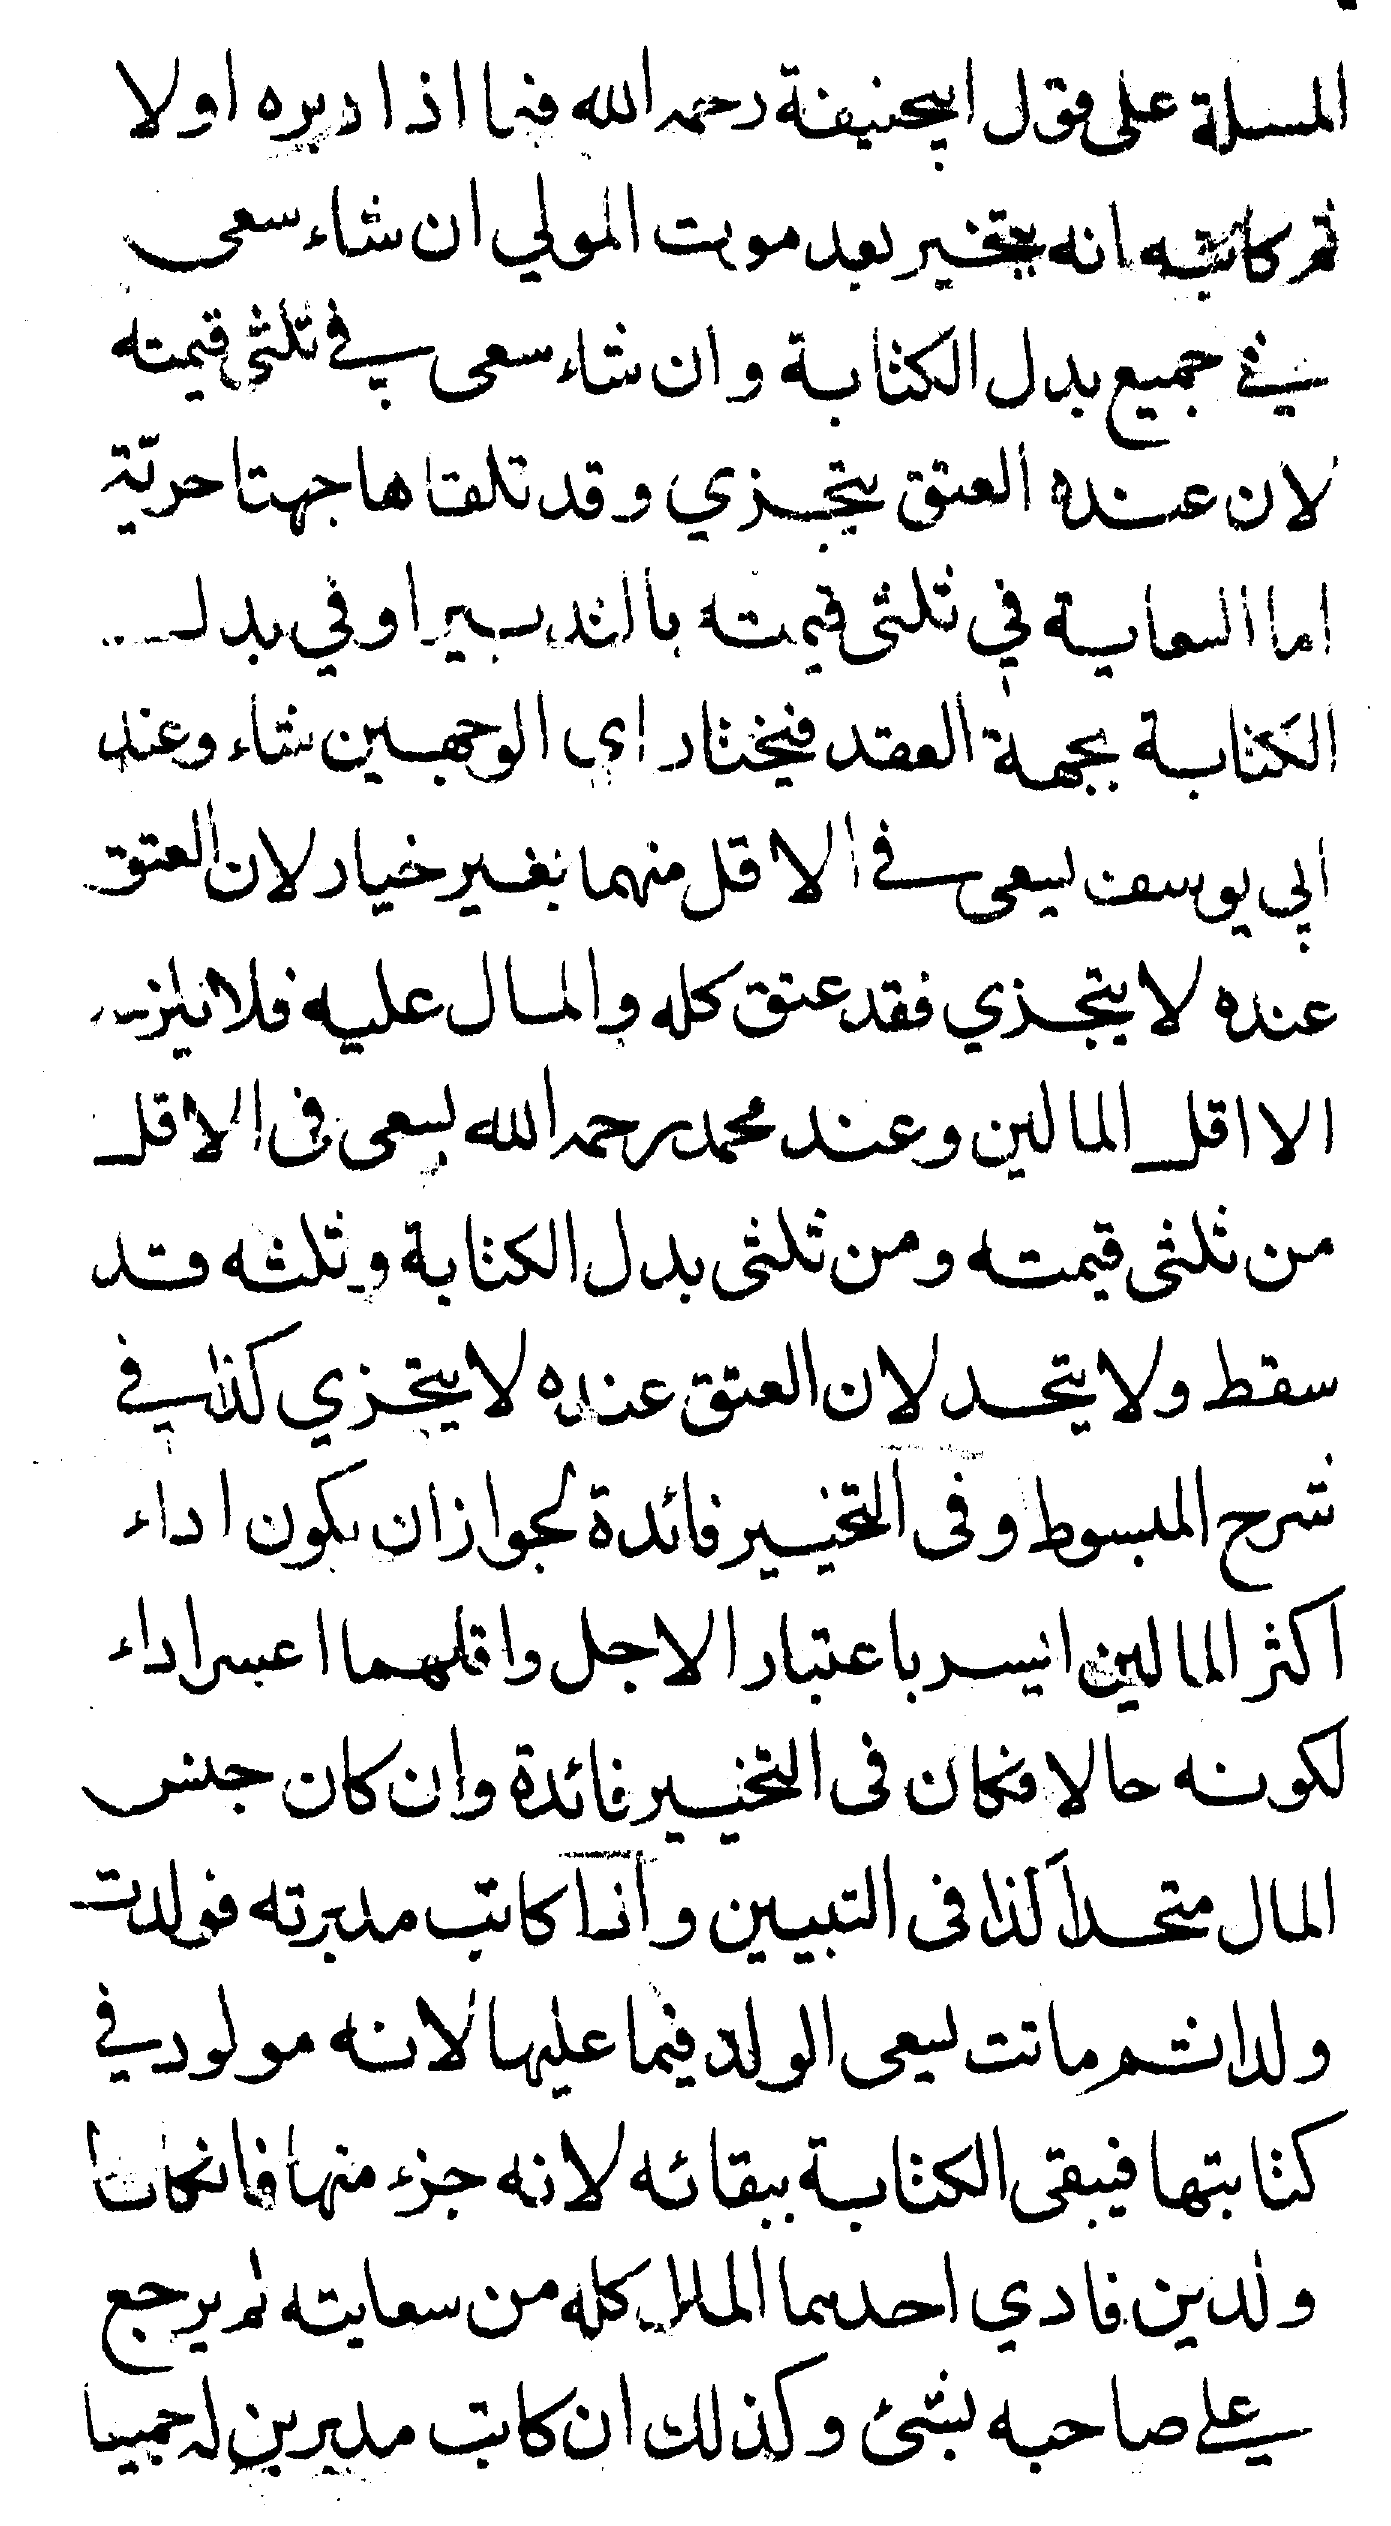 المسلة على قول ابيحنيفة رحمه الله فيما اذا دبره اولا
ثم كاتبه انه يتخير بعد موت المولي ان شاء سعى
في جميع بدل الكتابة وان شاء سعى في ثلثى قيمته
لان عنده العتق يتجزي وقد تلقاها جهتا حريّة
اما السعاية في ثلثى قيمته بالتدبير او في بدل
الكتابة بجهة العقد فيختار اي الوجهين شاء وعند
ابي يوسف يسعى في الاقل منهما بغير خيار لان العتق
عنده لا يتجزي فقد عتق كله والمال عليه فلا يلزمه
الا اقل المالين وعند محمد رحمه الله يسعى فى الاقل
من ثلثى قيمته ومن ثلثى بدل الكتابة وثلثه قد
سقط ولا يتحد لان العتق عنده لا يتجزي كذا في
شرح المبسوط وفى التخيير فائدة لجواز ان يكون اداء
اكثر المالين ايسر باعتبار الاجل واقلهما اعسر اداء
لكونه حالا فكان فى التخيير فائدة وان كان جنس
المال متحدا كذا فى التبيين واذا كاتب مدبرته فولدت
ولدا ثم ماتت يسعى الولد فيما عليها لانه مولود في
كتابتها فيبقى الكتابة ببقائه لانه جزء منها فان كانا
ولدين فادي احدهما المال كله من سعايته لم يرجع
على صاحبه بشئ وكذلك ان كاتب مدبرين له جميعا